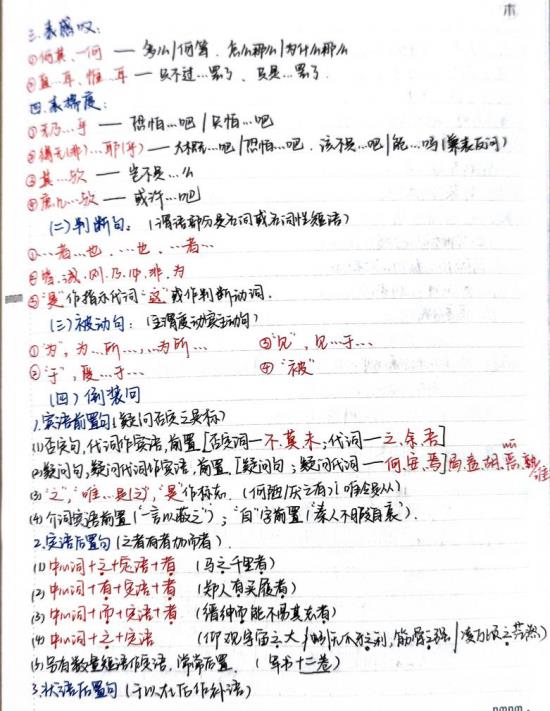 木
三.表感叹:
①何其、一何 — 多么/何等、怎么那么/为什么那么
②直…耳、惟…耳 — 只不过…罢了、只是…罢了
四.表揣度:
①无乃…乎 — 恐怕…吧/只怕…吧
②得无(非)…耶(乎) — 大概…吧/恐怕…吧、该不是…吧/能…吗(兼表反问)
③其…欤 — 岂不是…么
④庶几…欤 — 或许…吧
(二)判断句:(谓语部分是名词或名词性短语)
①…者…也、…也、…者…
②皆、诚、则、乃、即、非、为
③"是"作指示代词"这"或作判断动词.
(三)被动句:(主谓
①"为",为…所…,…为所… ③"见",见…于…
②"于",受…于… ④"被"
(四)倒装句
1.宾语前置句(疑问否定之是标)
(1)否定句,代词作宾语,前置[否定词—不、莫、未;代词—之、余、吾]
(2)疑问句,疑问代词作宾语,前置.[疑问句;疑问代词—何、安、焉]曷、盍、胡、恶、孰、谁
wū
(3)"之","唯…是(之)","是"作标志.(何陋之有)
(4)介词宾语前置("一言以蔽之");"自"字前置(秦人不暇自哀).
2.定语后置句(之者有者加而者).
(1)中心词+之+定语+者 (马之千里者)
(2)中心词+有+定语+者 (郑人有买履者)
(3)中心词+而+定语+者 (缙绅而能不易其志者)
(4)中心词+之+定语 (仰观宇宙之大/蚓无爪牙之利,筋骨之强/凌万顷之茫然)
(5)另有数量短语作定语,常常后置. (军书十二卷)
3.状语后置句(于以在后作补语)